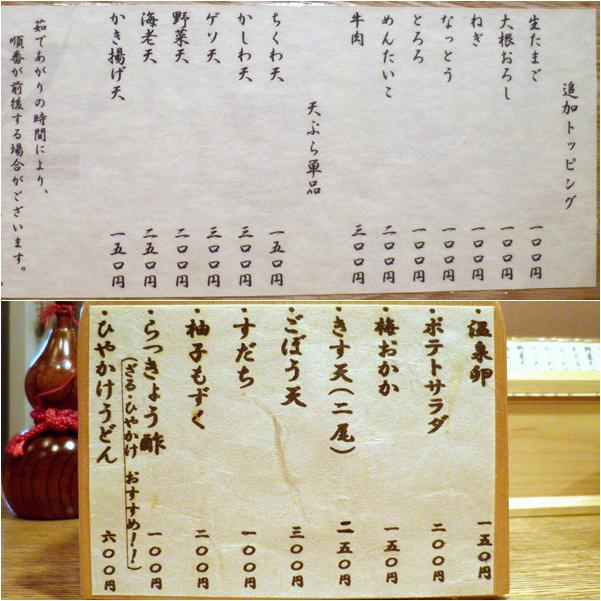 追加トッピング
生たまご 一〇〇円
大根おろし 一〇〇円
ねぎ 一〇〇円
なっとう 二〇〇円
とろろ 一〇〇円
めんたいこ 二〇〇円
牛肉 三〇〇円
天ぷら単品
ちくわ天 一五〇円
かしわ天 三〇〇円
ゲソ天 三〇〇円
野菜天 二〇〇円
海老天 二五〇円
かき揚げ天 一五〇円
茹であがりの時間により、
順番が前後する場合がございます。
・温泉卵 一五〇円
・ポテトサラダ 二〇〇円
・梅おかか 一五〇円
・きす天(二尾) 二五〇円
・ごぼう天 三〇〇円
・すだち 一〇〇円
・柚子もずく 二〇〇円
・らっきょう酢 一〇〇円
(ざる・ひやかけ おすすめ!!)
・ひやかけうどん 六〇〇円